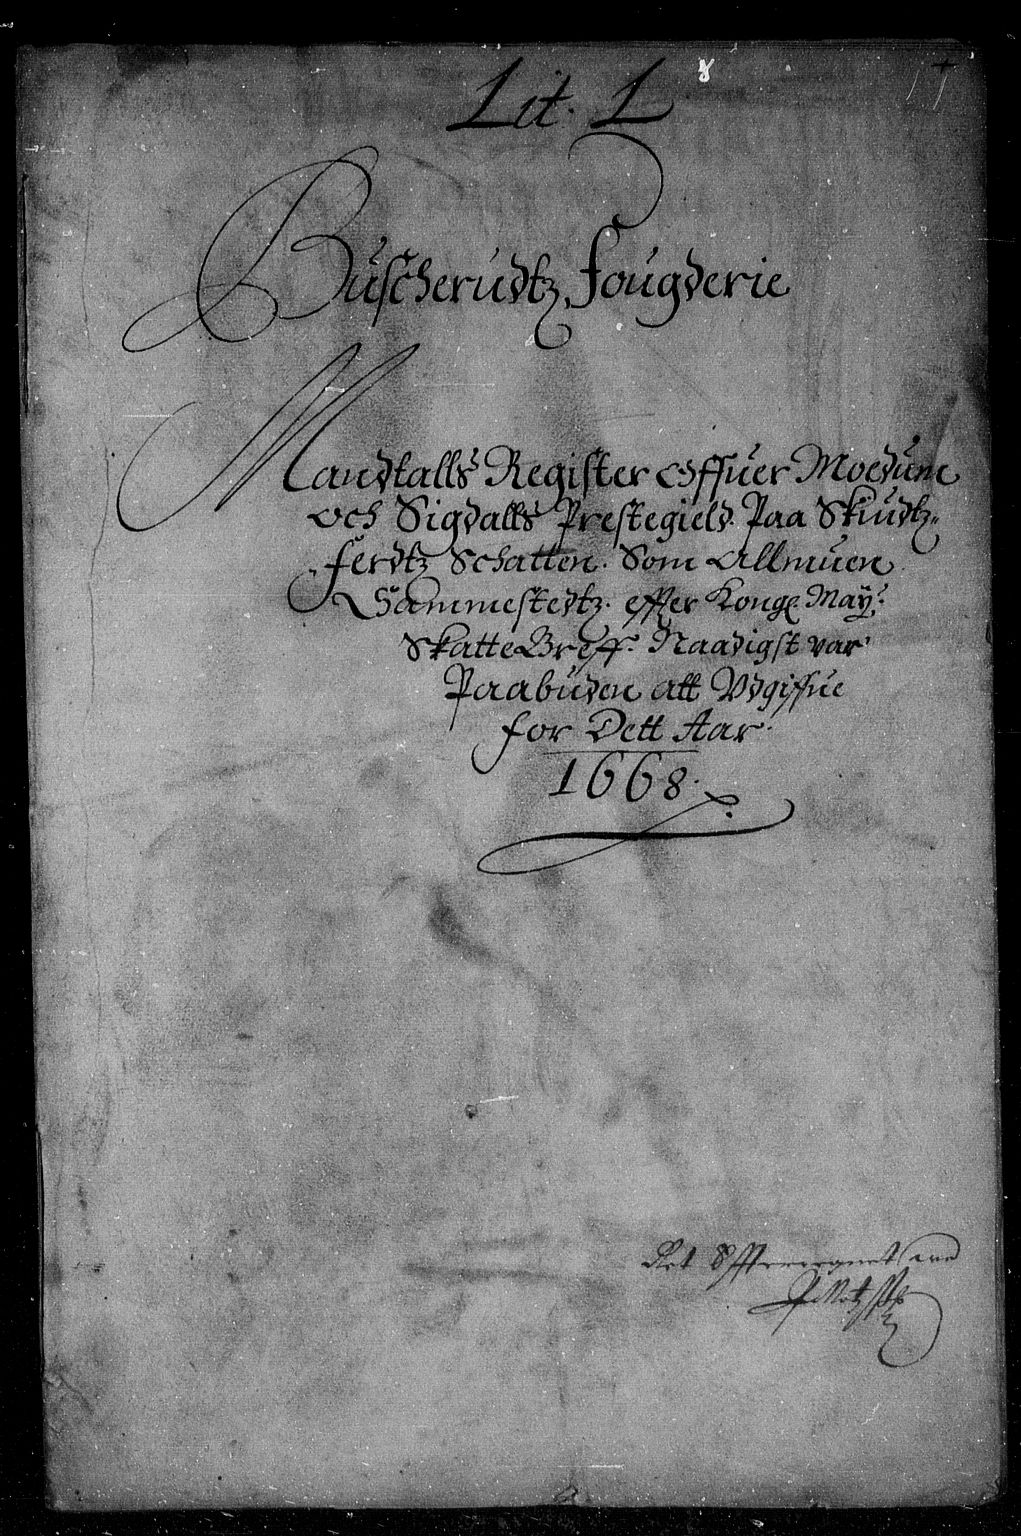 Lit. L
Buscherudtz, Fougderie
Mandtalls Register Offuer Modum
och Sigdalls Prestegield. Paa Skiudtz,,
ferdtz Schatten. Som Allmuen
Sammestedtz. effter Kongl. May:
Skatte Breff. Naadigst var
Paabuden att Vdgiffue
for Dett Aar.
1668.